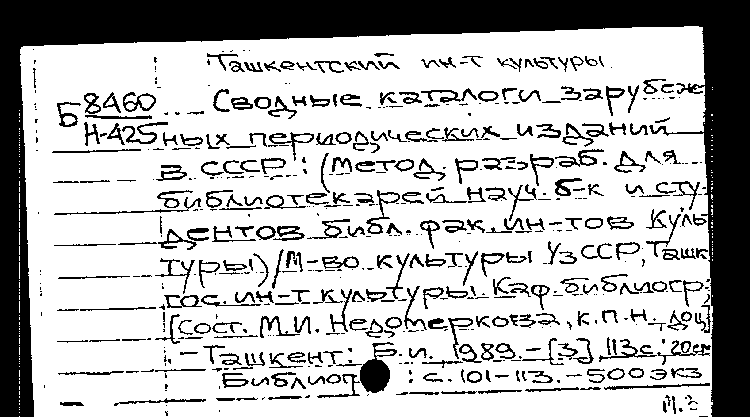 Ташкентский ин-т культуры
Б 8460 Сводные каталоги зарубеж
Н-425 ных периодических изданий
в СССР: (Метод. разраб. для
библиотекарей науч. б-к и сту-
дентов библ. фак. ин-тов Куль
туры) / М-во культуры УзССР, Ташк
гос. ин-т культуры Каф. библиогр;
[сост. М.И. Недомеркова, к.п.н., доц]
.- Ташкент: Б.и. 1989.-[3], 113с; 20см
Библиогр : с. 101-113. - 500 экз